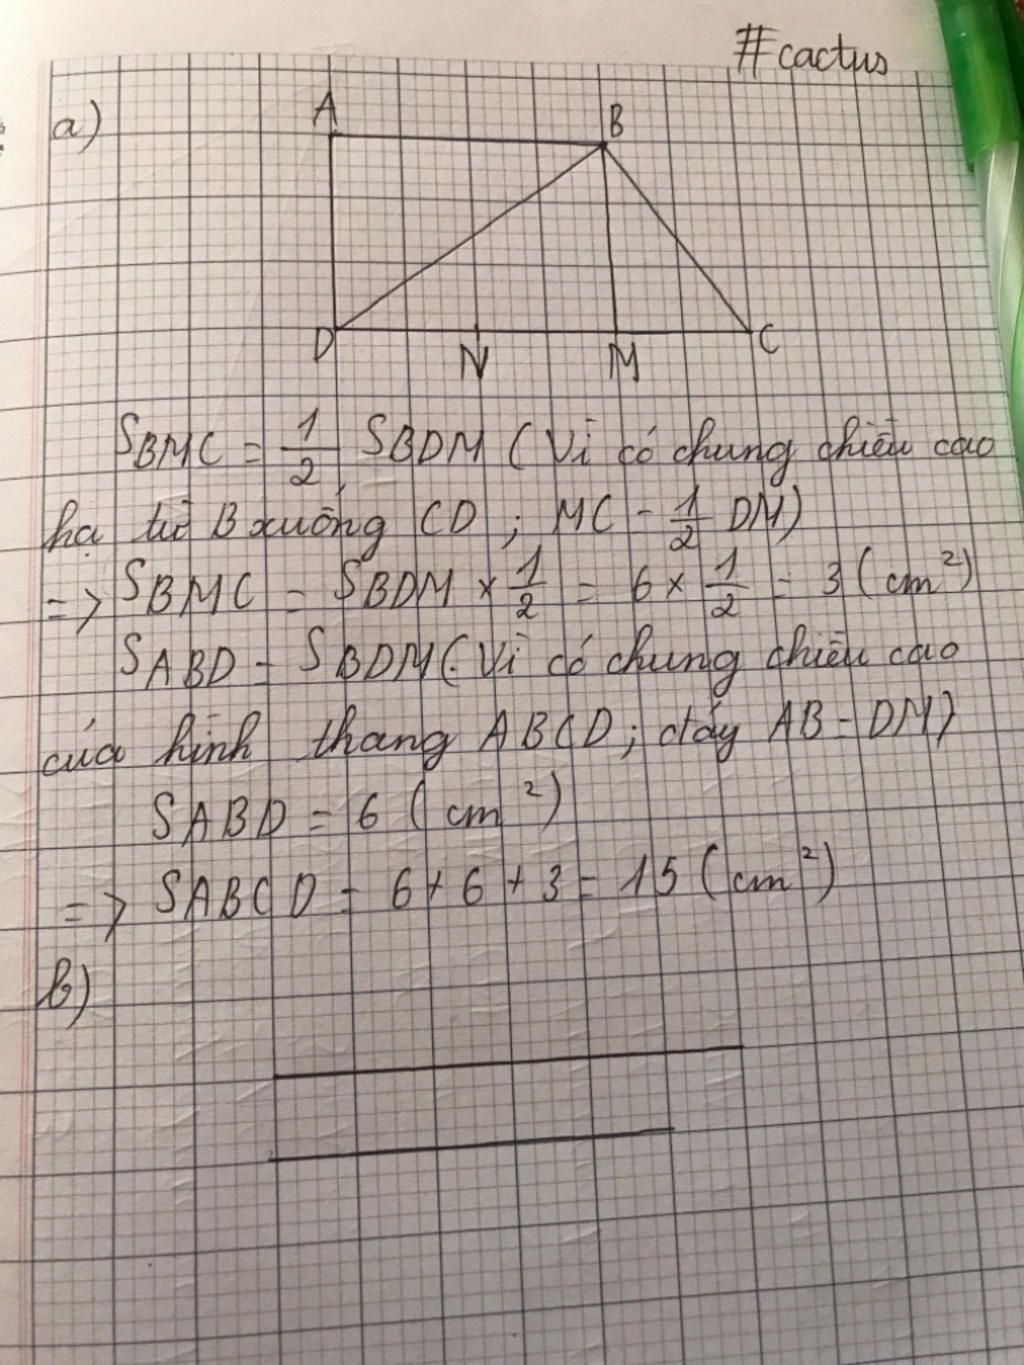 #cactus
a)
A
B
D
N
M
C
SBMC = 1/2 SBDM (Vì có chung chiều cao
hạ từ B xuống CD ; MC = 1/2 DM)
=> SBMC = SBDM × 1/2 = 6 × 1/2 = 3 (cm²)
SABD = SBDM (Vì có chung chiều cao
của hình thang ABCD ; đáy AB = DM)
SABD = 6 (cm²)
=> SABCD = 6 + 6 + 3 = 15 (cm²)
b)